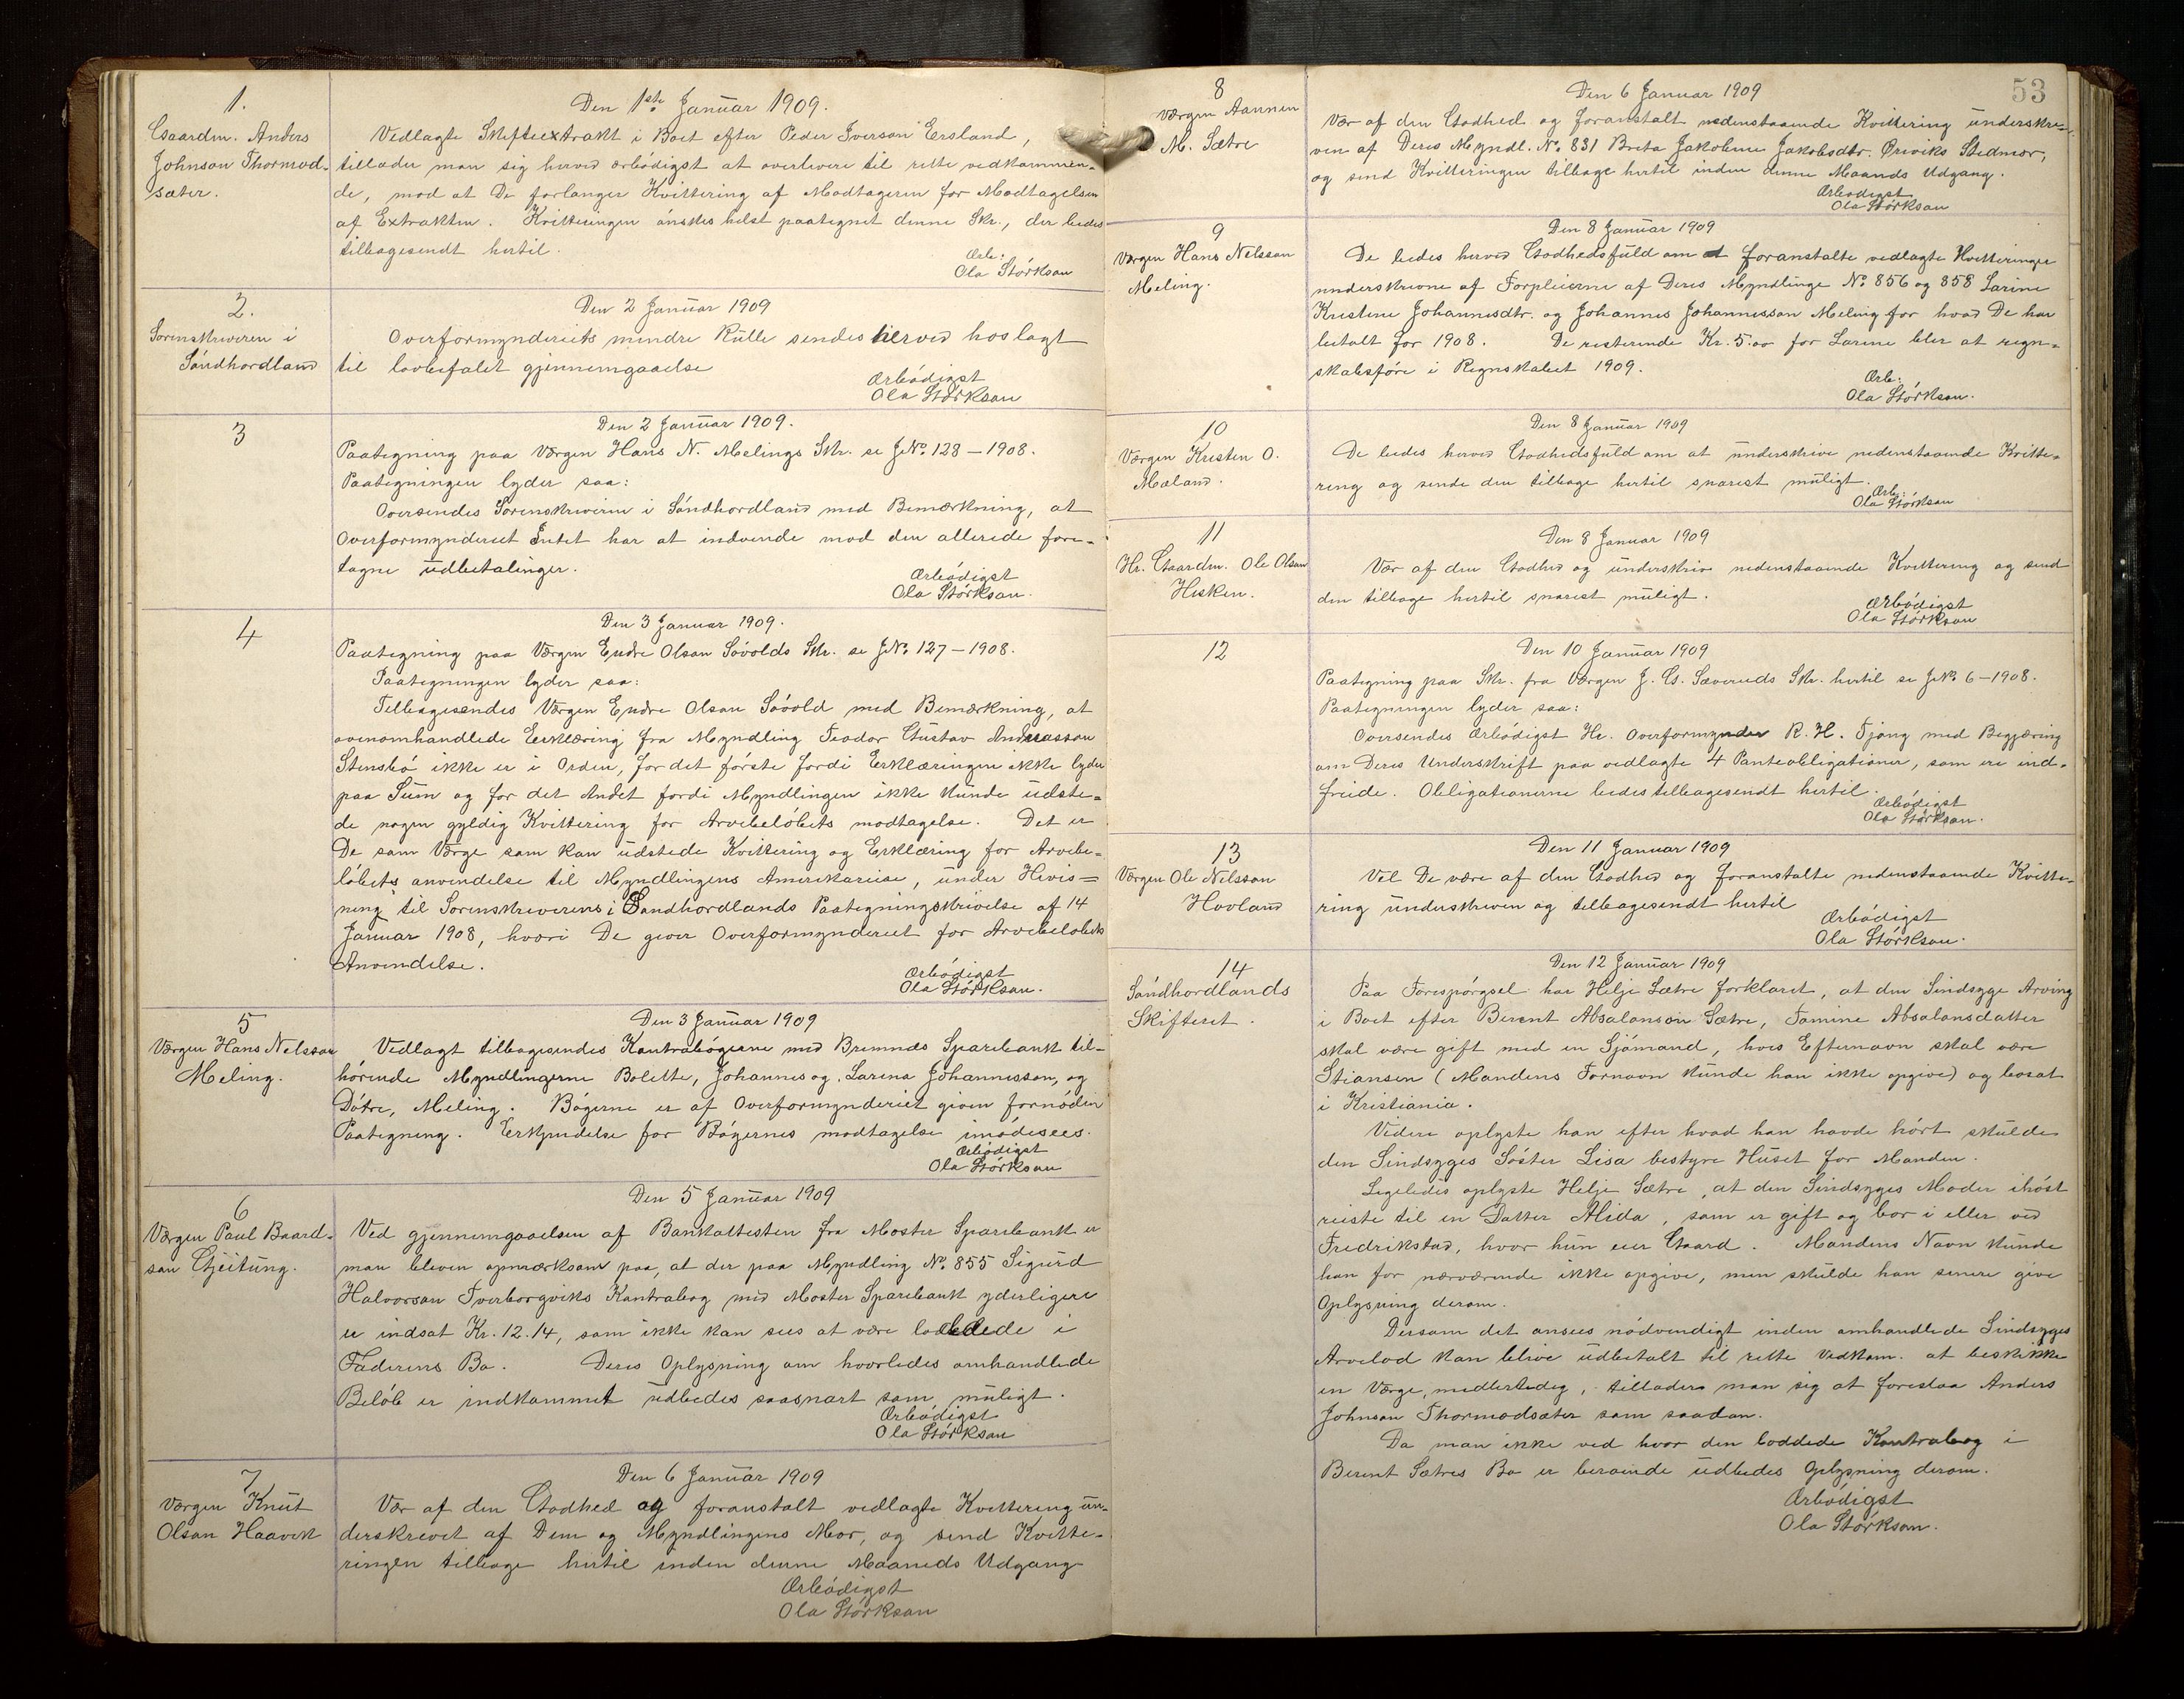 1.
Gaardm. Anders
Johnson Thormod-
sæter.
Den 1ste Januar 1909.
Vedlagte Skifteextrakt i Boet efter Peder Iverson Ersland,
tillader man sig herved ærbødigst at overlevere til rette vedkommen-
de, mod at De forlanger Kvittering af Modtageren for Modtagelsen
af Extrakten. Kvitteringen ønskes helst paategnet denne Skr., der bedes
tilbagesendt hertil.
Ærb.
Ola Størkson
2.
Sorenskriveren i
Søndhordland
Den 2 Januar 1909
Overformynderiets mindre Rulle sendes herved hoslagt
til lovbefalet gjennemgaaelse
Ærbødigst
Ola Størkson
3
Den 2 Januar 1909.
Paategning paa Værgen Hans N. Melings Skr. se J№ 128 – 1908.
Paategningen lyder saa:
Oversendes Sorenskriveren i Søndhordland med Bemærkning, at
Overformynderiet Intet har at indvende mod den allerede fore-
tagne udbetalinger.
Ærbødigst
Ola Størkson.
4
Den 3 Januar 1909.
Paategning paa Værgen Endre Olson Søvolds Skr. se J№ 127 – 1908.
Paategningen lyder saa:
Tilbagesendes Værgen Endre Olson Søvold med Bemærkning, at
ovenomhandlede Erklæring fra Myndling Teodor Gustav Andreasson
Stensbø ikke er i Orden, for det første fordi Erklæringen ikke lyder
paa Sum og for det Andet fordi Myndlingen ikke kunde udste-
de nogen gyldig Kvittering for Arvebeløbets modtagelse. Det er
De som Værge som kan udstede Kvittering og Erklæring for Arvebe-
løbets anvendelse til Myndlingens Amerikareise, under Henvis=
ning til Sorenskriverens i Søndhordlands Paategningsskrivelse af 14
Januar 1908, hvori De giver Overformynderiet for Arvebeløbets
Anvendelse.
Ærbødigst
Ola Størkson.
5
Værgen Hans Nelsson
Meling.
Den 3 Januar 1909
Vedlagt tilbagesendes Kontrabøgerne med Bremnes Sparebank til-
hørende Myndlingerne Bolette, Johannes og Larina Johannesson, og
Døtre, Meling. Bøgerne er af Overformynderiet given fornøden
Paategning. Erkjendelse for Bøgernes modtagelse imødesees.
Ærbødigst
Ola Størkson
6
Værgen Paul Baard-
son Gjeitung.
Den 5 Januar 1909
Ved gjennemgaaelsen af Bankattesten fra Moster Sparebank er
man bleven opmærksom paa, at der paa Myndling № 855 Sigurd
Halvorson Tverborgviks Kontrabog med Moster Sparebank yderligere
er indsat Kr. 12.14, som ikke kan sees at være loddede i
Faderens Bo. Deres Oplysning om hvorledes omhandlede
Beløb er indkommet udbedes saasnart som muligt.
Ærbødigst
Ola Størkson
7
Værgen Knut
Olson Haavik
Den 6 Januar 1909
Vær af den Godhed og foranstalt vedlagte Kvittering un-
derskrevet af Dem og Myndlingens Mor, og send Kvitte-
ringen tilbage hertil inden denne Maaneds Udgang
Ærbødigst
Ola Størkson
53
8
Værgen Aannen
M. Sætre
Den 6 Januar 1909
Vær af den Godhed og foranstalt nedenstaaende Kvittering underskre-
ven af Deres Myndl. № 831 Breta Jakobine Jakobsdtr. Ørviks Stedmor,
og send Kvitteringen tilbage hertil inden denne Maands Udgang.
Ærbødigst
Ola Størkson
9
Værgen Hans Nelsson
Meling.
Den 8 Januar 1909
De bedes herved Godhedsfuld om at foranstalte vedlagte Kvitteringer
underskrevne af Forpleierne af Deres Myndlinge № 856 og 858 Larine
Kristine Johannesdtr. og Johannes Johannesson Meling for hvad De har
betalt for 1908. De resterende Kr. 5.00 for Larine bler at regn-
skabsføre i Regnskabet 1909.
Ærb.
Ola Størkson.
10
Værgen Kristen O.
Mæland.
Den 8 Januar 1909
De bedes herved Godhedsfuld om at underskrive nedenstaaende Kvitte-
ring og sende den tilbage hertil snarest muligt.
Ærb.
Ola Størkson
11
Hr. Gaardm. Ole Olson
Hisken.
Den 8 Januar 1909
Vær af den Godhed og underskriv nedenstaaende Kvittering og send
den tilbage hertil snarest muligt.
Ærbødigst
Ola Størkson
12
Den 10 Januar 1909
Paategning paa Skr. fra Værgen J. G. Sæveruds Skr. hertil se J№ 6 – 1908.
Paategningen lyder saa:
Oversendes Ærbødigst Hr. Overformynder R. H. Fjøng med Begjæring
om Deres Underskrift paa vedlagte 4 Panteobligationer, som ere ind-
friede. Obligationerne bedes tilbagesendt hertil.
Ærbødigst
Ola Størkson.
13
Værgen Ole Nelsson
Hovland
Den 11 Januar 1909
Vil De være af den Godhed og foranstalte nedenstaaende Kvitte-
ring underskreven og tilbagesendt hertil
Ærbødigst
Ola Størkson.
14
Søndhordlands
Skifteret.
Den 12 Januar 1909
Paa Forespørgsel har Helje Sætre forklaret, at den Sindsyge Arving
i Boet efter Berent Absalonson Sætre, Tamine Absalonsdatter
skal være gift med en Sjømand, hvis Efternavn skal være
Stiansen (Mandens Fornavn kunde han ikke opgive) og bosat
i Kristiania.
Videre oplyste han efter hvad han havde hørt skulde
den Sindsyges Søster Lisa bestyre Huset for Manden.
Ligeledes oplyste Helje Sætre, at den Sindsyges Moder ihøst
reiste til en Datter Alida, som er gift og bor i eller ved
Fredrikstad, hvor hun eier Gaard. Mandens Navn kunde
han for nærværende ikke opgive, men skulde han senere give
Oplysning derom.
Dersom det ansees nødvendigt inden omhandlede Sindsyges
Arvelod kan blive udbetalt til rette Vedkom. at beskikke
en Værge, midlertidig, tillader man sig at foreslaa Anders
Johnson Thormodsæter som saadan.
Da man ikke ved hvor den loddede Kontrabog i
Berent Sætres Bo er beroende udbedes Oplysning derom.
Ærbødigst
Ola Størkson.